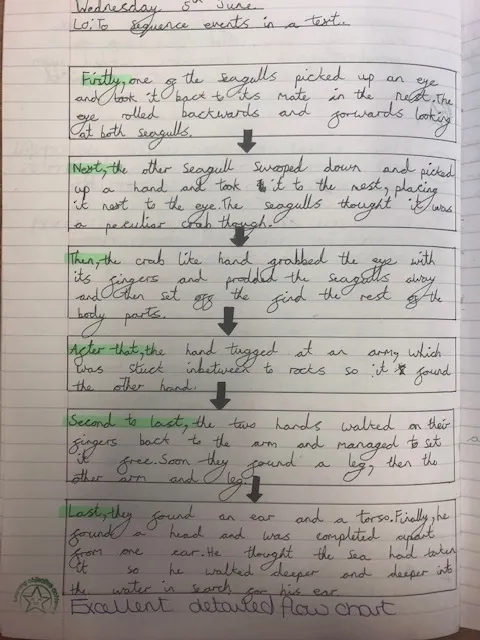 Wednesday 5th June
L.O: To sequence events in a text.
Firstly, one of the seagulls picked up an eye
and took it back to its mate in the nest. The
eye rolled backwards and forwards looking
at both seagulls.
Next, the other seagull swooped down and picked
up a hand and took it to the nest, placing
it next to the eye. The seagulls thought it was
a peculiar crab though.
Then, the crab like hand grabbed the eye with
its fingers and prodded the seagulls away
and then set off the find the rest of the
body parts.
After that, the hand tugged at an arm, which
was stuck inbetween to rocks so it found
the other hand.
Second to last, the two hands walked on their
fingers back to the arm and managed to set
it free. Soon they found a leg, then the
other arm and leg.
Last, they found an ear and a torso. Finally, he
found a head and was completed apart
from one ear. He thought the sea had taken
it so he walked deeper and deeper into
the water in search for his ear.
Excellent detailed flow chart